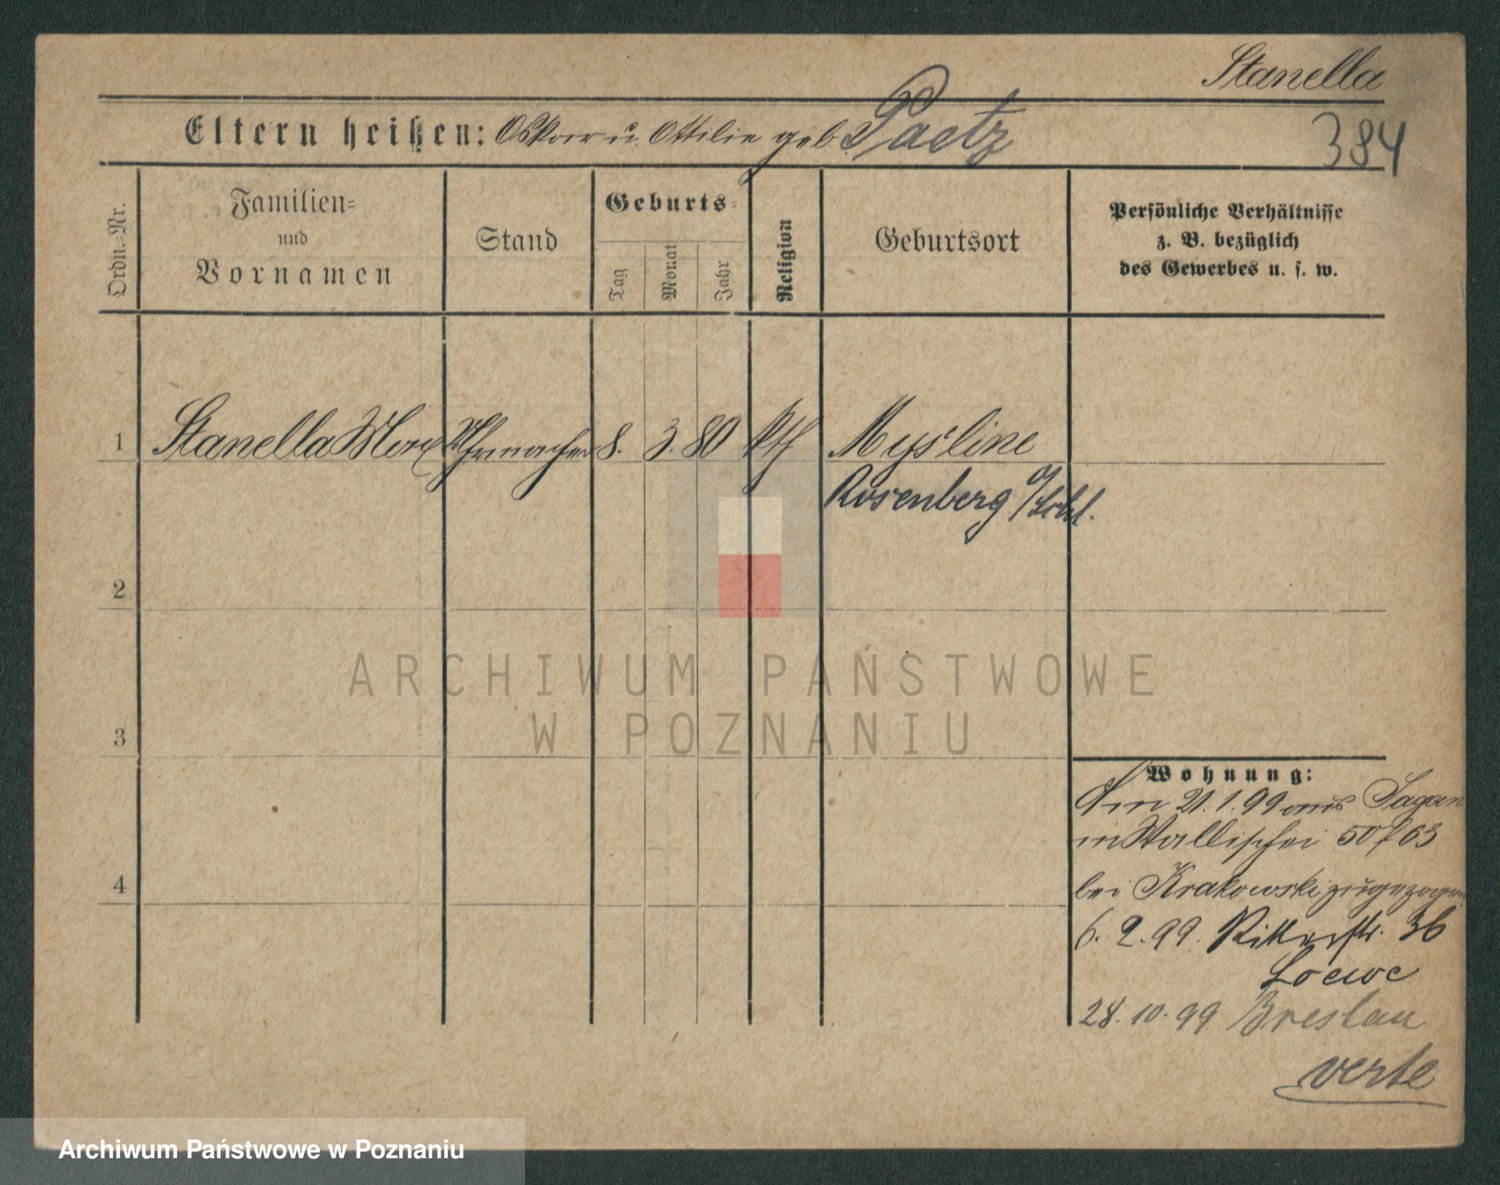 Stanella
Eltern heißen: Oskar u. Ottilie geb. Paetz
384
Ordn.=Nr.
Familien=
und
Vornamen
Stand
Geburts=
Tag
Monat
Jahr
Religion
Geburtsort
Persönliche Verhältnisse
z. B. bezüglich
des Gewerbes u. s. w.
1 Stanella Max Uhrmacher 8. 3. 80 kth Mysline
Rosenberg o/Schl.
2
3
4
Wohnung:
Am 21.1.99 aus Sagan
in Wallischei 50/63
bei Krakowski zugezogen
6. 2. 99. Ritterstr. 36
Loewe
28. 10. 99 Breslau
verte
ARCHIWUM PAŃSTWOWE
W POZNANIU
Archiwum Państwowe w Poznaniu